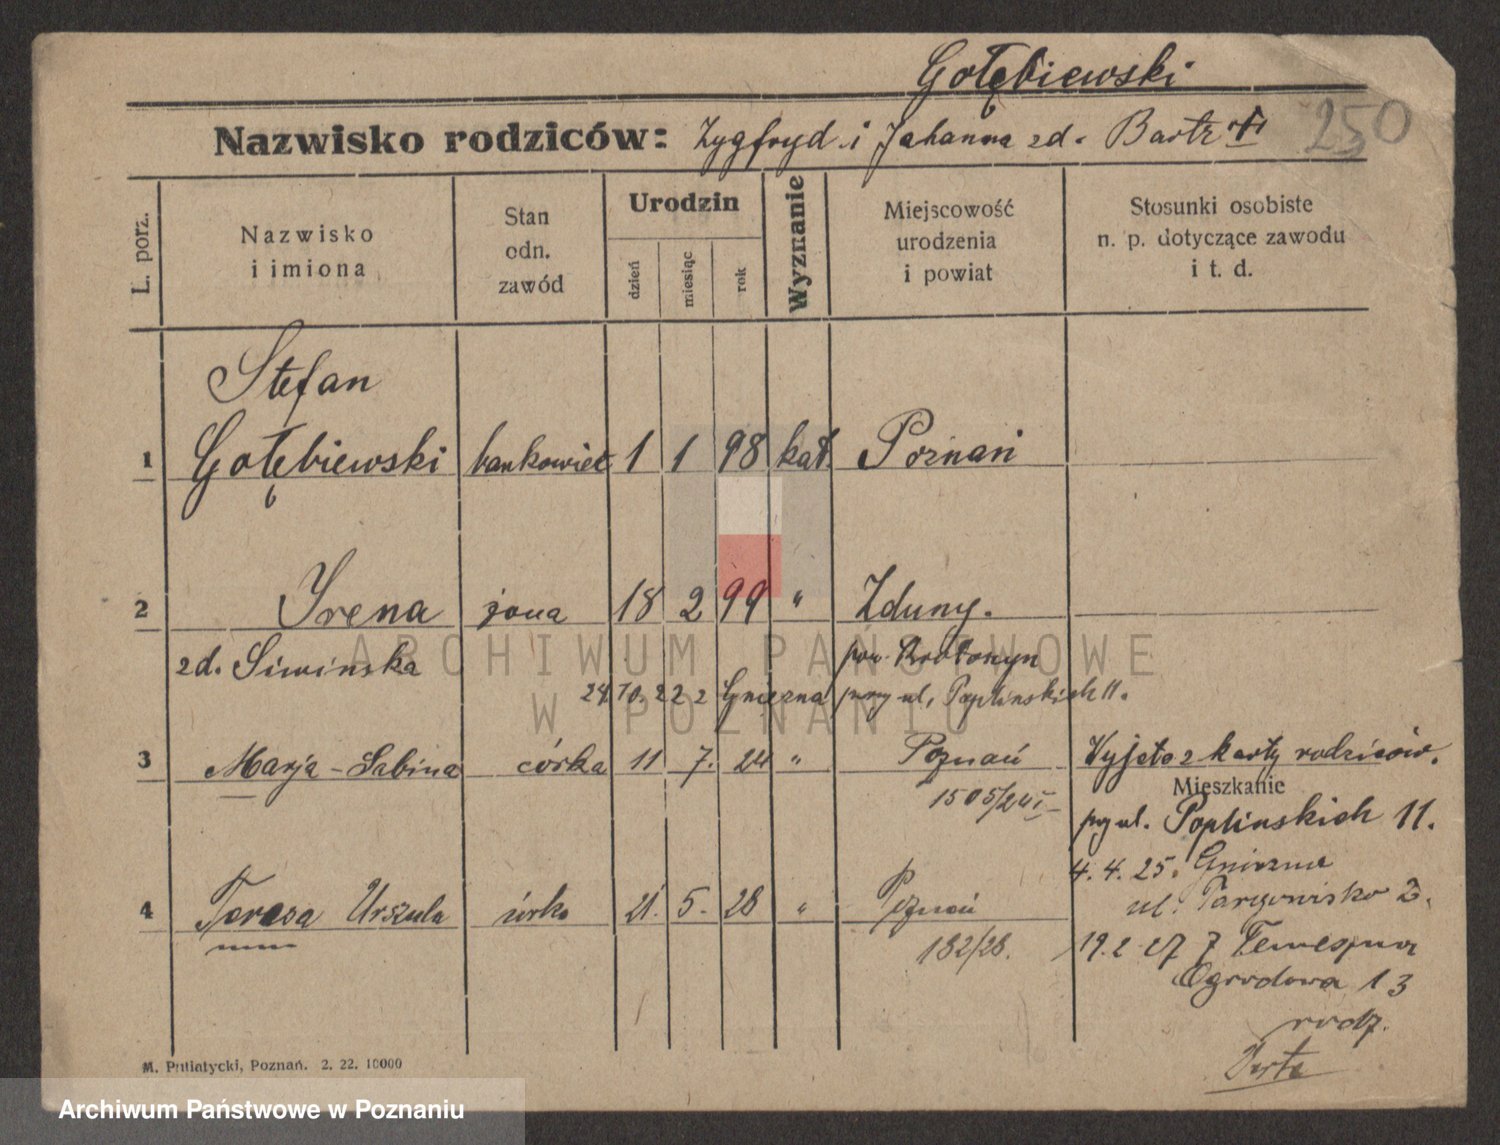 Gołębiewski
250
Nazwisko rodziców: Zygfryd i Johanna zd. Bartz
L. porz.
Nazwisko
i imiona
Stan
odn.
zawód
Urodzin
dzień
miesiąc
rok
Wyznanie
Miejscowość
urodzenia
i powiat
Stosunki osobiste
n. p. dotyczące zawodu
i t. d.
Stefan
1 Gołębiewski bankowiec 1 1 98 kat. Poznań
2 Irena żona 18 2 99 " Zduny.
zd. Siwińska pow. Krotoszyn
24.10.22 z Gniezna przy ul. Poplińskich 11.
3 Marja-Sabina córka 11 7. 24 " Poznań Wyjęto z karty rodziców.
1505/24 I
Mieszkanie
przy ul. Poplińskich 11.
4.4.25. Gniezna
ul. Targowisko 2.
4 Teresa Urszula córka 21. 5. 28 " Poznań
182/28.
19.2 27 z
Ogrodowa 13
rodz.
M. Putiatycki, Poznań. 2. 22. 10000
ARCHIWUM PAŃSTWOWE
W POZNANIU
Archiwum Państwowe w Poznaniu